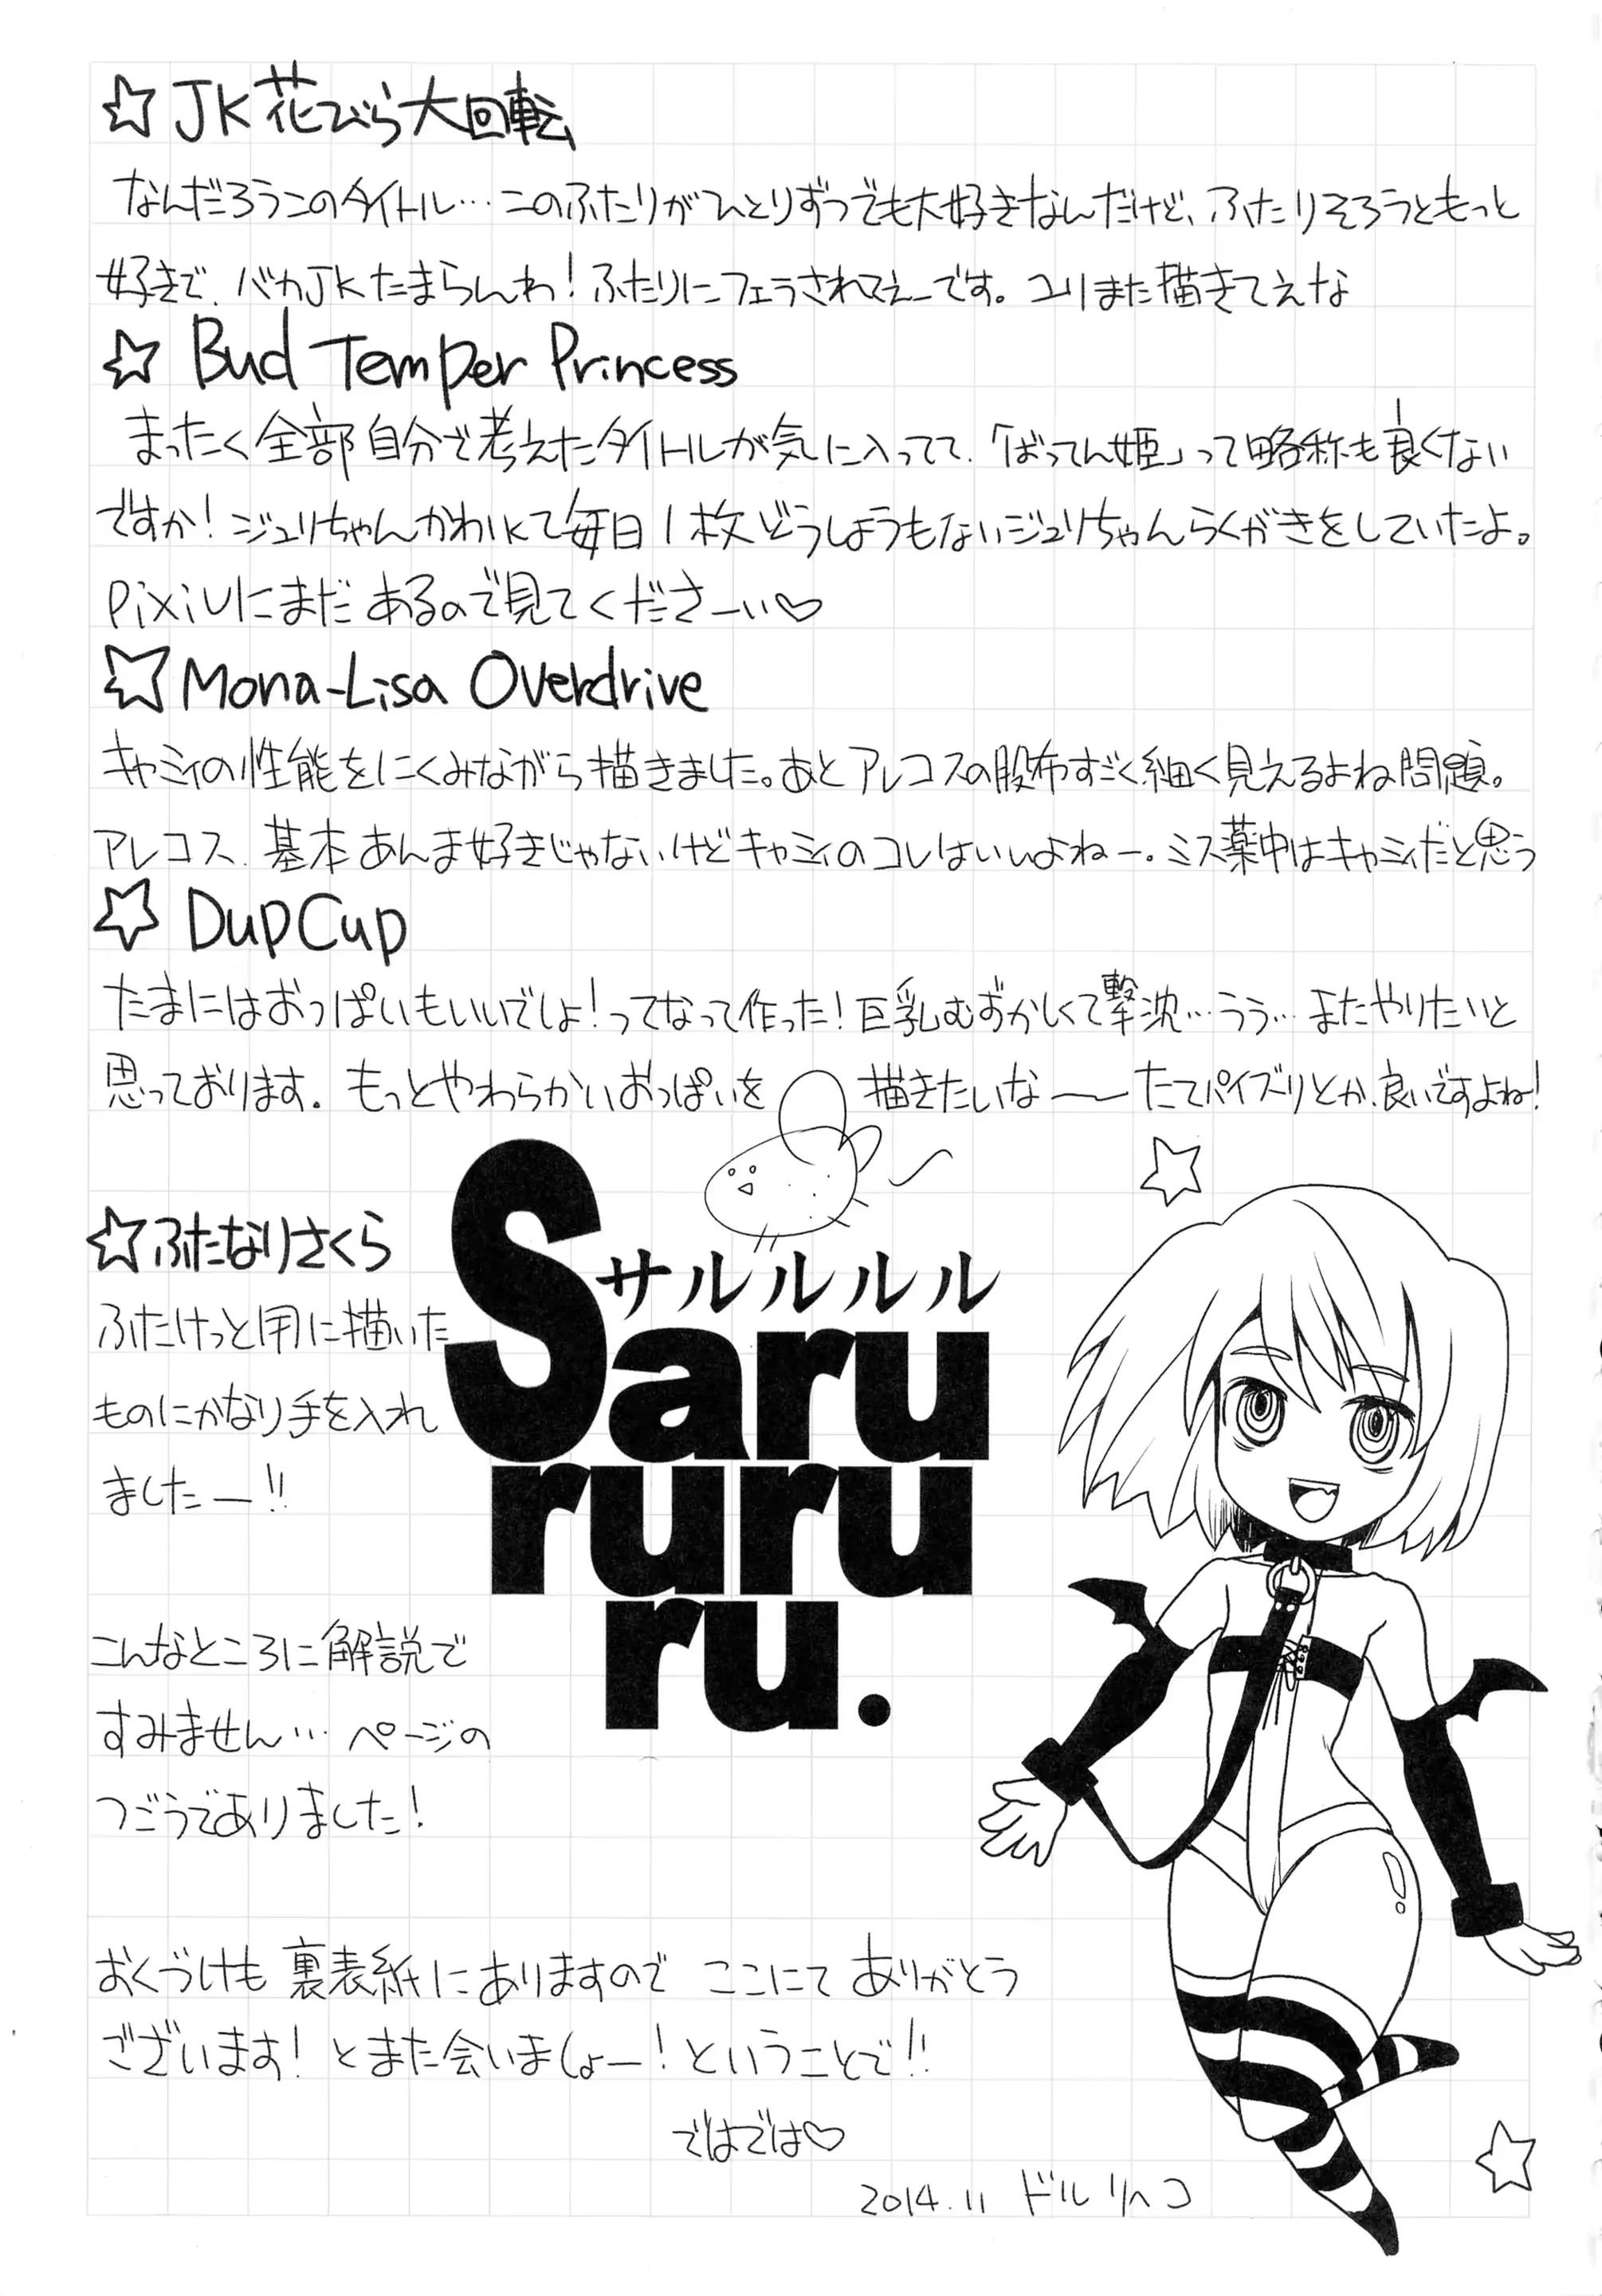 ☆JK花びら大回転
なんだろうこのタイトル…このふたりがひとりずつでも大好きなんだけど、ふたりそろうともっと
好きで、バカJKたまらんわ!ふたりにフェラされてえーです。ユリまた描きてえな
☆Bud Temper Princess
まったく全部自分で考えたタイトルが気に入ってて、「ばってん姫」って略称も良くない
ですか!ジュリちゃんかわいくて毎日1枚どうしようもないジュリちゃんらくがきをしていたよ。
pixivにまだあるので見てくださーい♡
☆Mona-Lisa Overdrive
キャミィの性能をにくみながら描きました。あとアレコスの股布すごく細く見えるよね問題。
アレコス、基本あんま好きじゃないけどキャミィのコレはいいよねー。ミス薬中はキャミィだと思う
☆DupCup
たまにはおっぱいもいいでしょ!ってなって作った!巨乳むずかしくて撃沈…うう…またやりたいと
思っております。もっとやわらかいおっぱいを 描きたいな〜たてパイズリとか、良いですよね!
☆ふたなりさくら
ふたけっと用に描いた
ものにかなり手を入れ
ましたー!!
サルルルル
Saru
ruru
ru.
こんなところに解説で
すみません…ページの
つごうでありました!
おくづけも裏表紙にありますので ここにて ありがとう
ございます!とまた会いましょー!ということで!!
ではでは♡
2014.11 ドルリヘコ